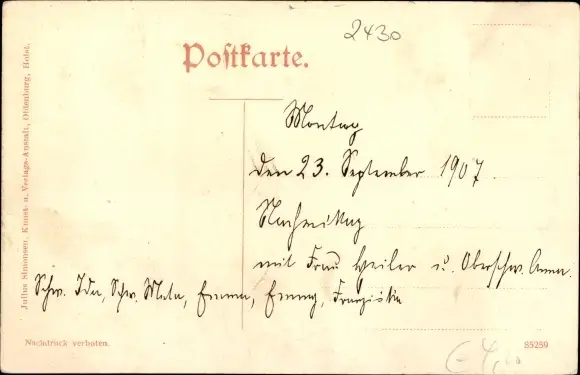 2430
Postkarte.
Montag
den 23. September 1907.
Nachmittag
mit Frau Heiler u. Oberschw. Anna.
Schw. Ida, Schw. Meta, Emma, Emmy, Franziska
Julius Simonsen, Kunst- u. Verlags-Anstalt, Oldenburg, Holst.
Nachdruck verboten.
85259